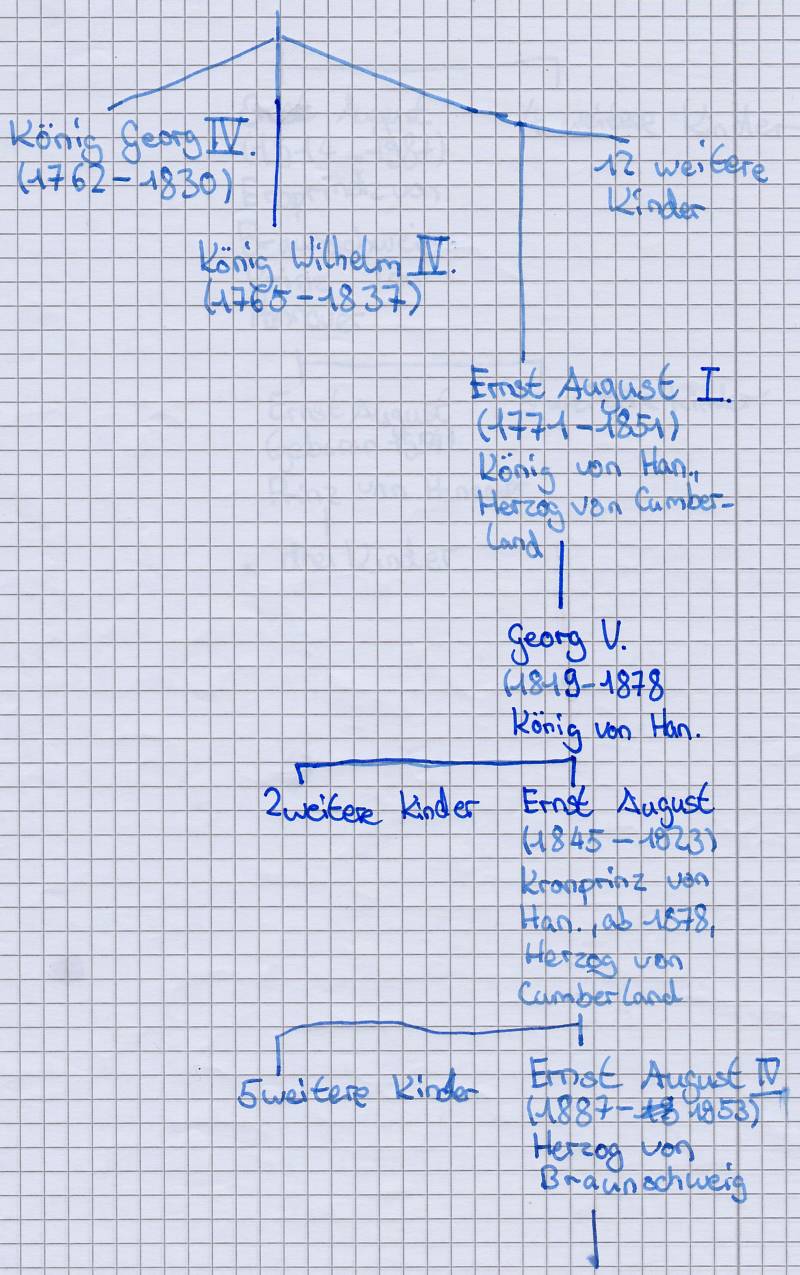 König Georg IV.
(1762-1830)
12 weitere
Kinder
König Wilhelm IV.
(1765-1837)
Ernst August I.
(1771-1851)
König von Han.,
Herzog von Cumber-
land
Georg V.
(1819-1878
König von Han.
2 weitere Kinder
Ernst August
(1845-1923)
Kronprinz von
Han., ab 1878,
Herzog von
Cumberland
5 weitere Kinder
Ernst August IV
(1887-1953)
Herzog von
Braunschweig